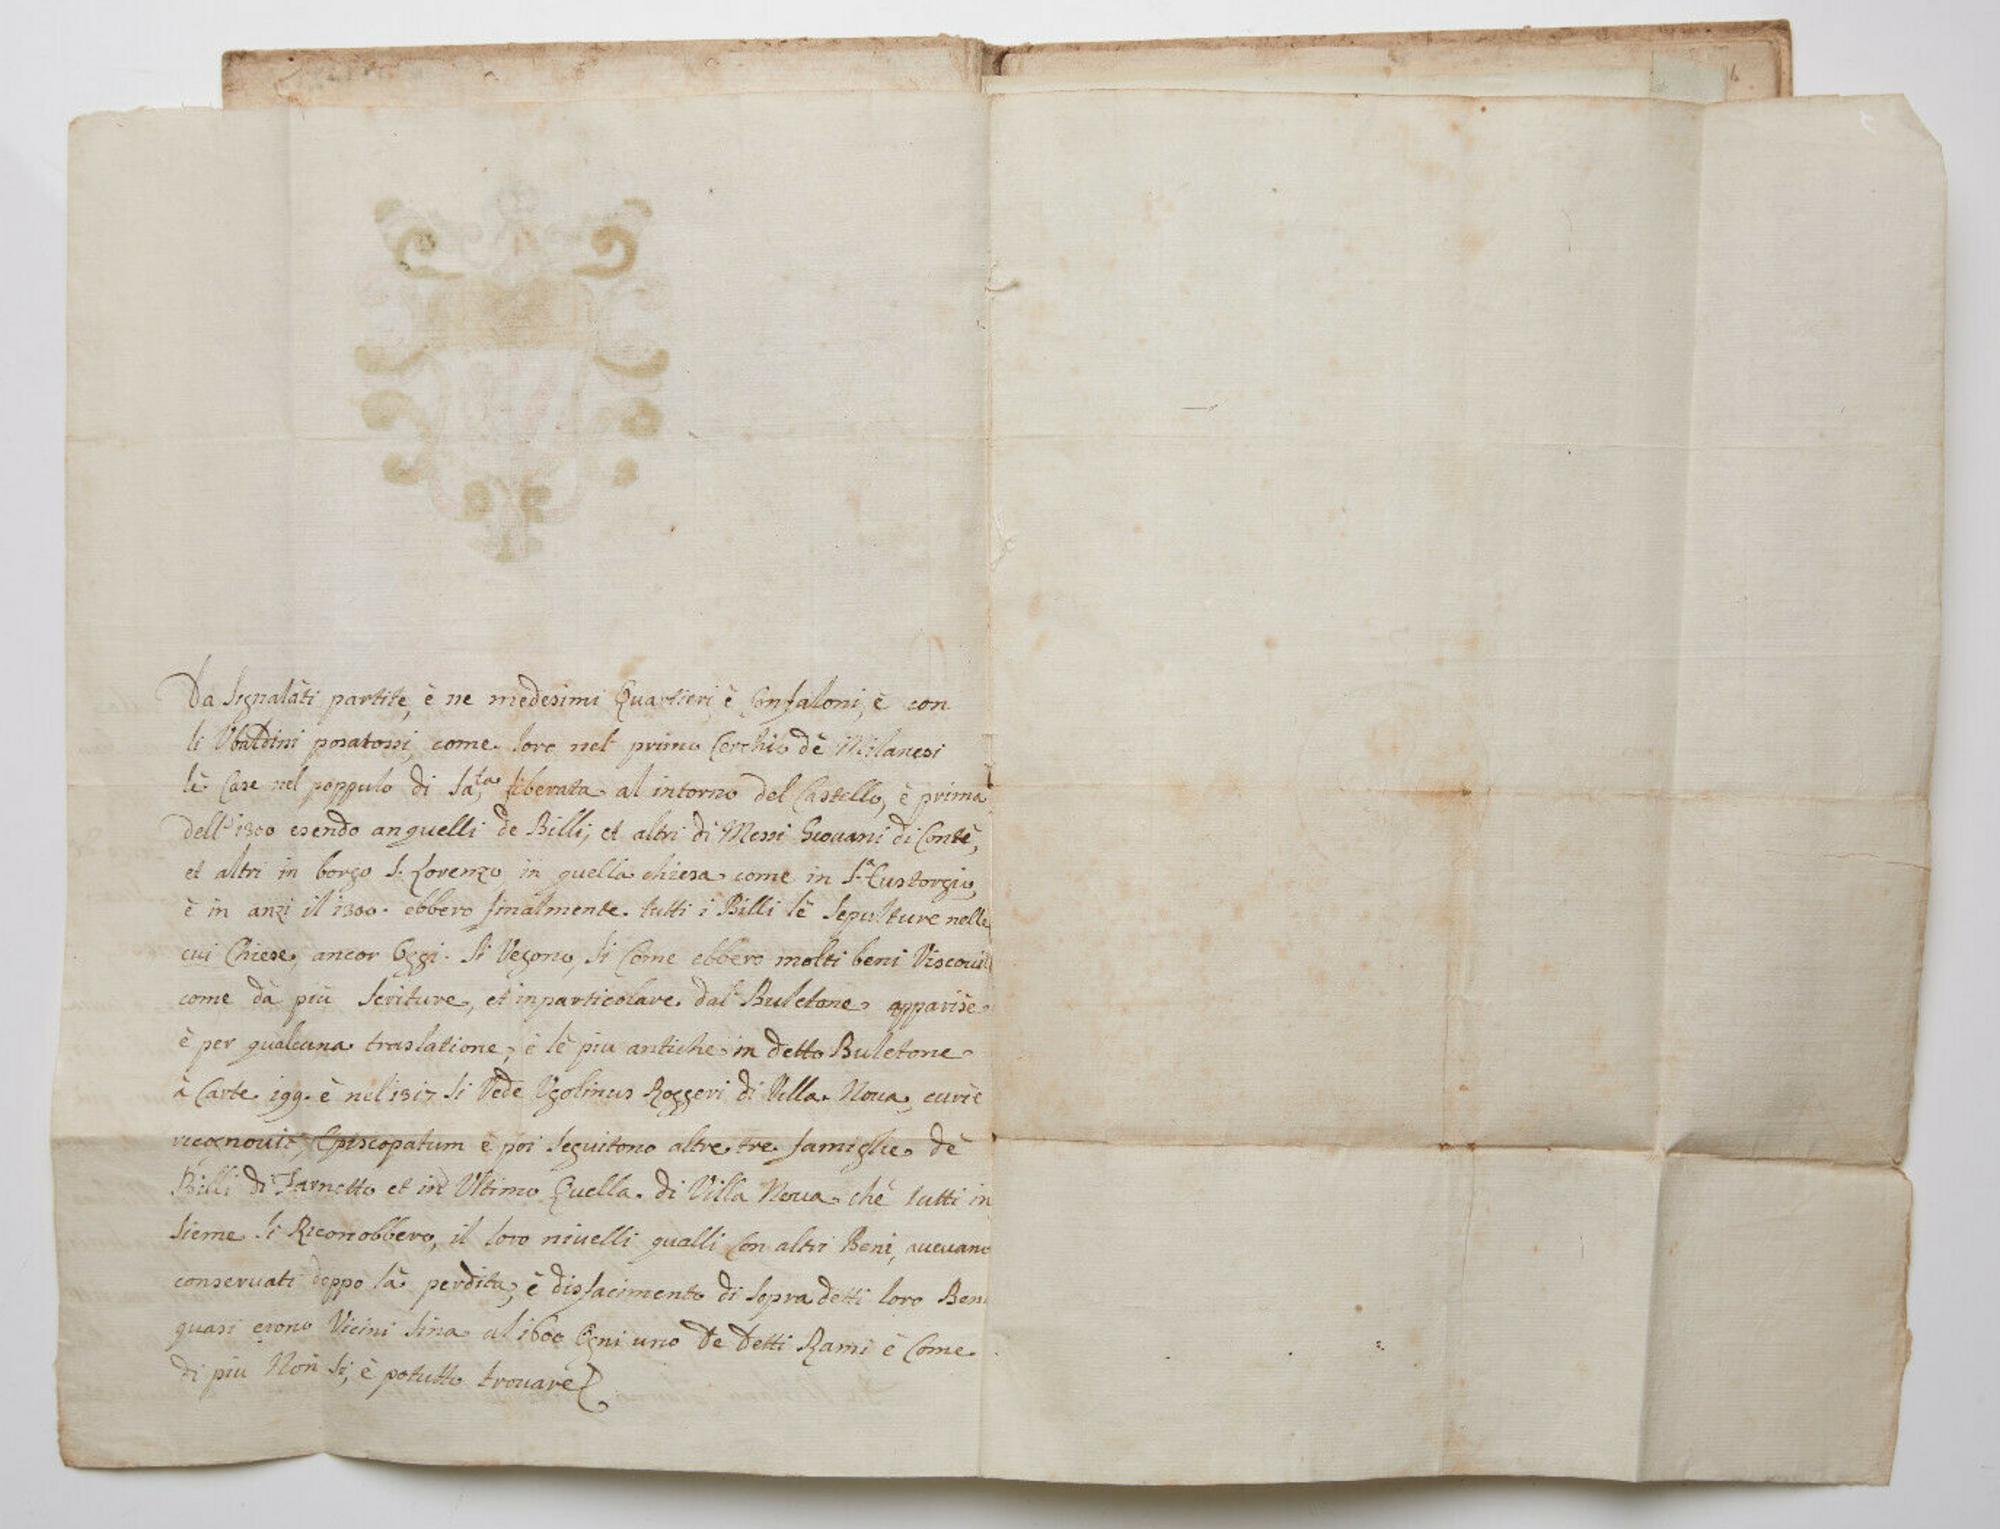 Da Segnalàti partite, è ne medesimi Quartieri, è Confaloni, è con
li Vbaldini posatossi, come loro nel primo Cerchio dè Milanesi
lè Case nel poppulo di Sa,ta liberata al intorno del Castello, è prima
dell' 1300 esendo anquelli de Billi, et altri di Messi Giouani di Contè,
et altri in borgo S. Lorenzo in quella chiesa come in S.a Eustorgio,
è in anzi il 1300. ebbero finalmente tutti i Billi lè Sepulture nelle
cui Chiese, ancor Oggi Si Vegono, Si Come ebbero molti beni Viscouili
come dà più Scriture, et inparticolare dal Buletone apparise
è per qualcuna traslatione, è lè piu antiche in detto Buletone
à Carte 199. è nel 1317 Si Vede Vgolinus Roggeri di Villa Noua, curiè
ricognouit Episcopatum è poi Seguitono altre tre famiglie dè
Billi di Farnetto et in Vltimo Quella di Villa Noua chè tutti in
sieme Si Riconobbero, il loro niuelli qualli Con altri Beni, aueuano
conseruati doppo là perdita, è disfacimento di Sopra detti loro Beni
quasi erono Vicini Sina al 1600 Ogni uno De Detti Rami è Come
di piu Non Si, è potutto trouare